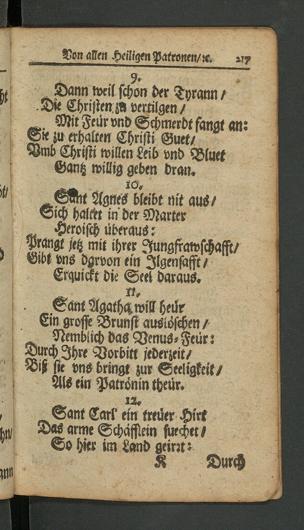 Von allen Heiligen Patronen/ꝛc. 217
9.
Dann weil schon der Tyrann/
Die Christen zu vertilgen/
Mit Feür vnd Schmerdt fangt an:
Sie zu erhalten Christi Guet/
Vmb Christi willen Leib vnd Bluet
Gantz willig geben dran.
10.
Sant Agnes bleibt nit aus/
Sich haltet in der Marter
Heroisch überaus:
Prangt jetz mit ihrer Jungfrawschafft/
Gibt vns darvon ein Ilgensafft/
Erquickt die Seel daraus.
11.
Sant Agatha will heür
Ein grosse Brunst auslöschen/
Nemblich das Venus-Feür:
Durch Ihre Vorbitt jederzeit/
Biß sie vns bringt zur Seeligkeit/
Als ein Patrönin theür.
12.
Sant Carl' ein treüer Hirt
Das arme Schäfflein suechet/
So hier im Land geirrt:
K Durch